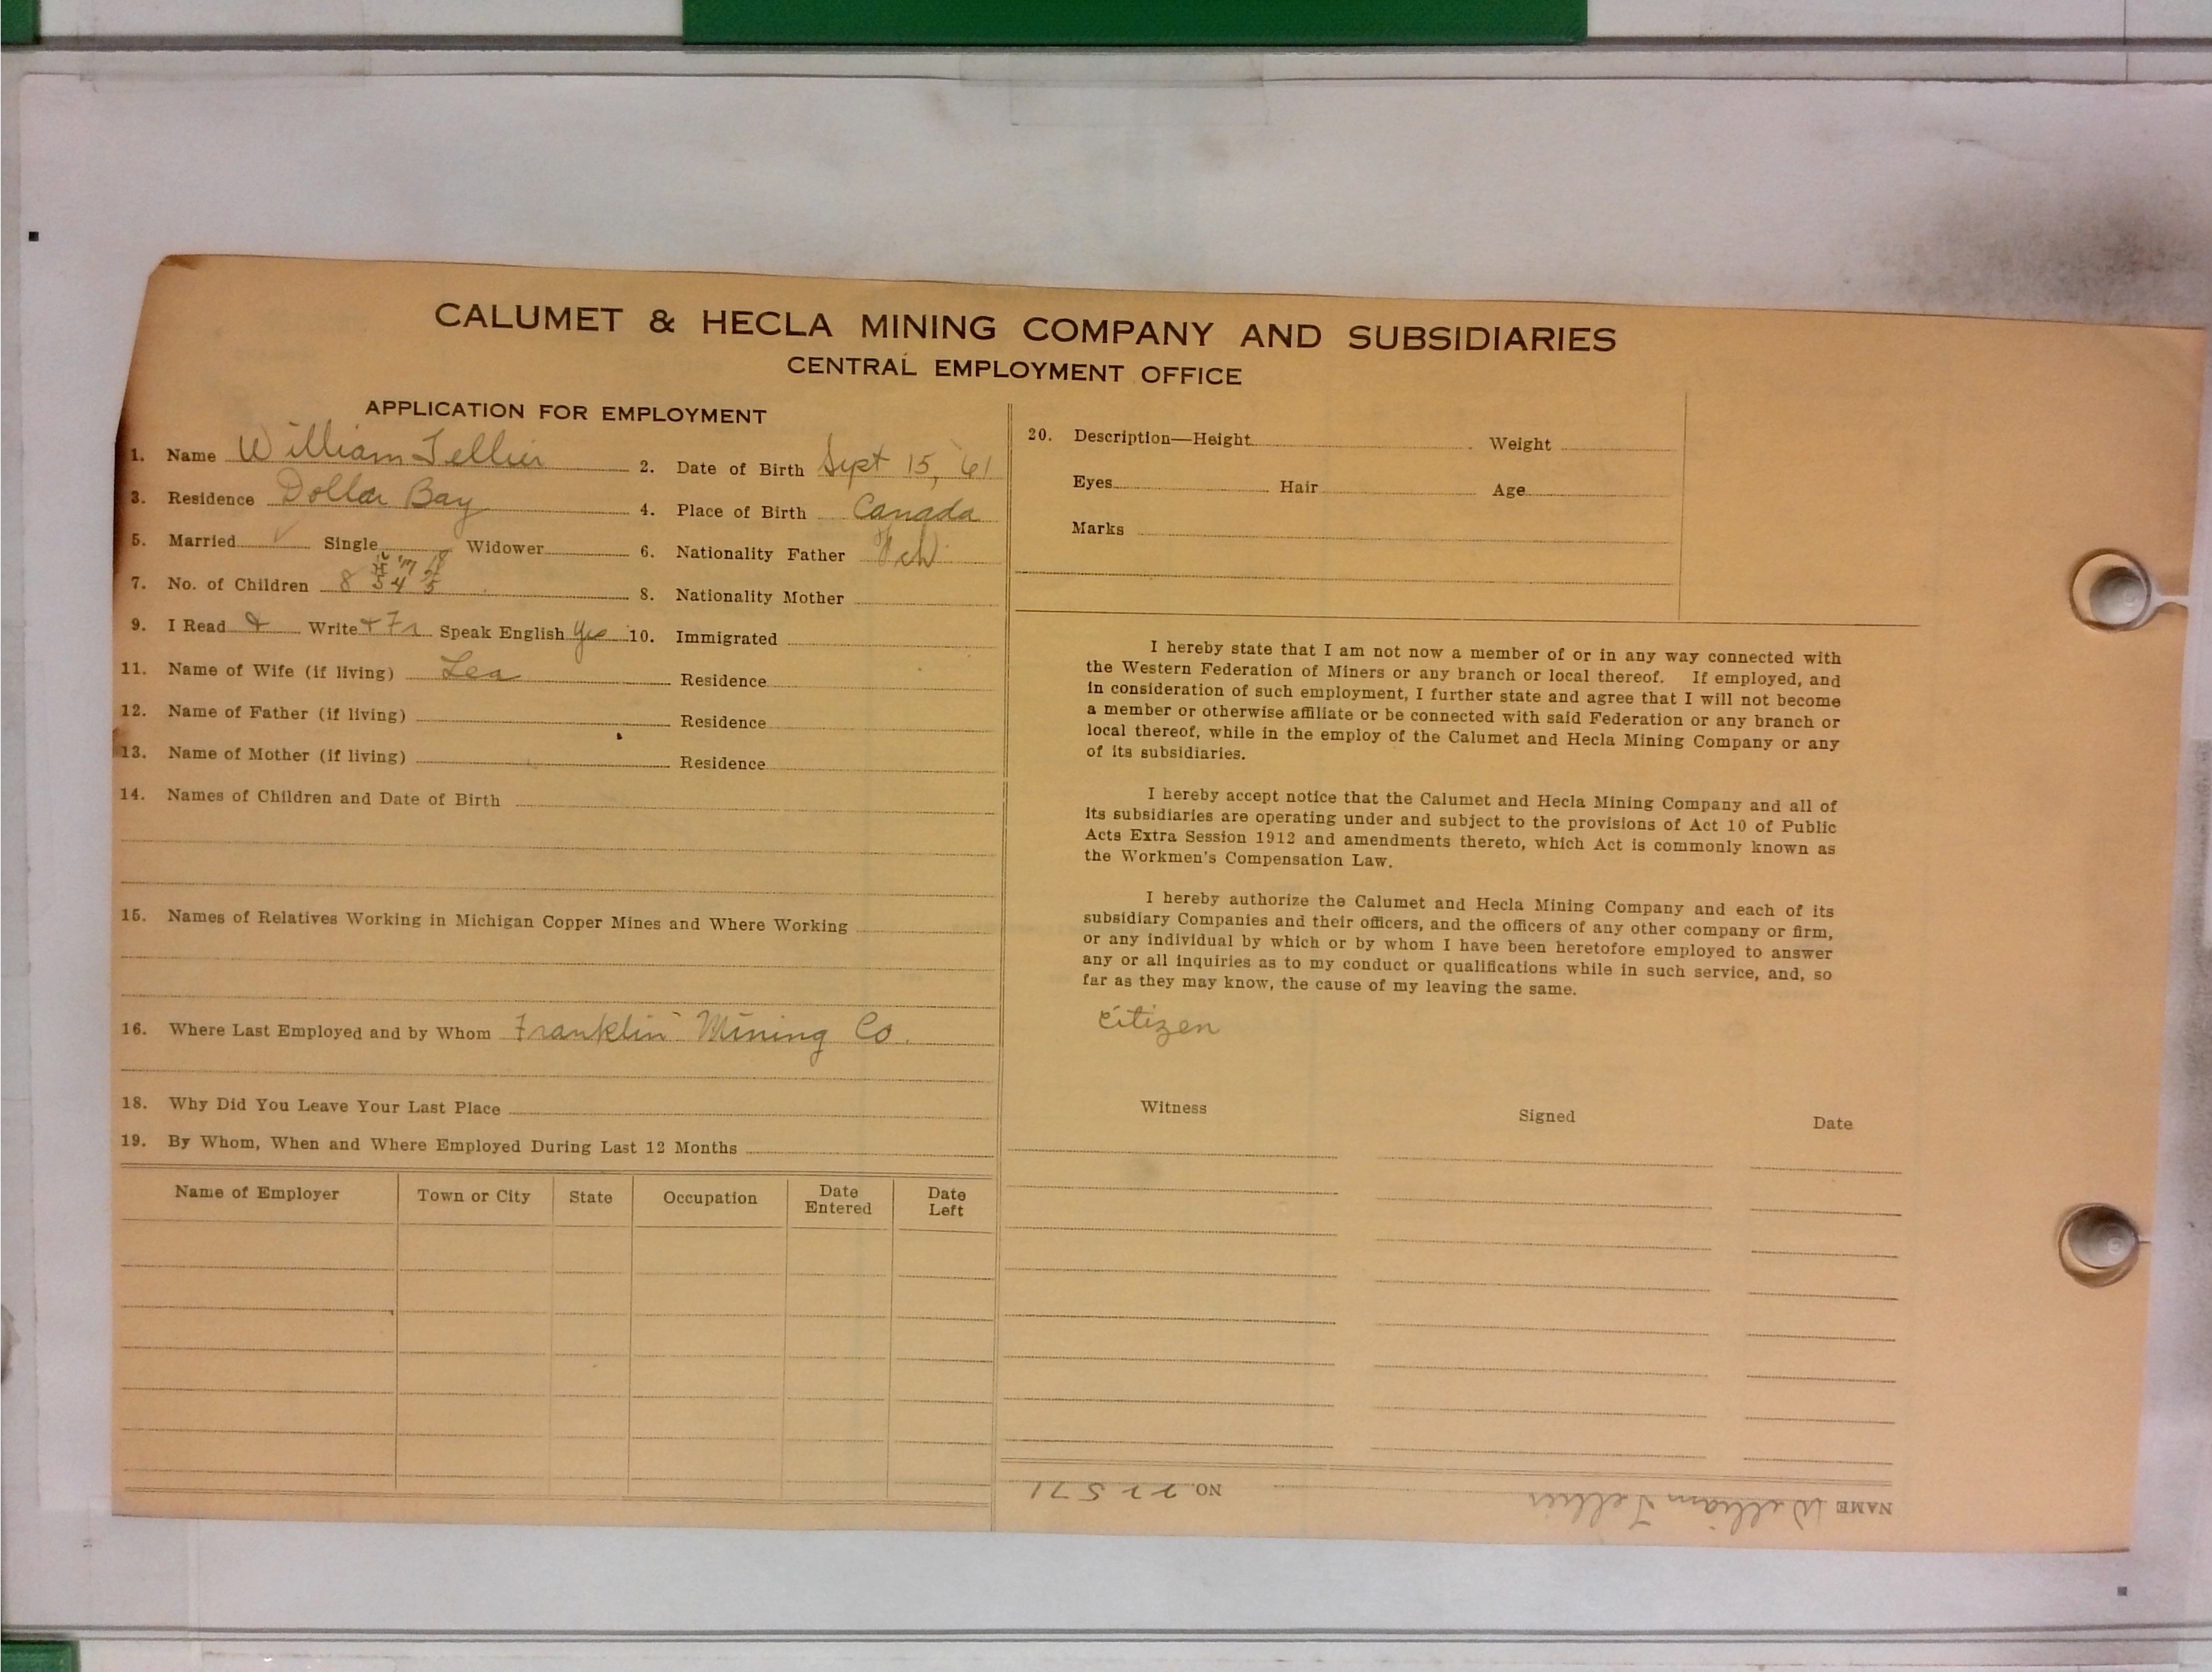 CALUMET & HECLA MINING COMPANY AND SUBSIDIARIES
CENTRAL EMPLOYMENT OFFICE
APPLICATION FOR EMPLOYMENT
1. Name William Tellier 2. Date of Birth Sept 15, '61
3. Residence Dollar Bay 4. Place of Birth Canada
5. Married ✓ Single Widower 6. Nationality Father Fch
7. No. of Children 8 8. Nationality Mother
9. I Read & Write & Fr Speak English yes 10. Immigrated
11. Name of Wife (if living) Lea Residence
12. Name of Father (if living) Residence
13. Name of Mother (if living) Residence
14. Names of Children and Date of Birth
15. Names of Relatives Working in Michigan Copper Mines and Where Working
16. Where Last Employed and by Whom Franklin Mining Co.
18. Why Did You Leave Your Last Place
19. By Whom, When and Where Employed During Last 12 Months
Name of Employer Town or City State Occupation Date Entered Date Left
20. Description—Height Weight
Eyes Hair Age
Marks
I hereby state that I am not now a member of or in any way connected with
the Western Federation of Miners or any branch or local thereof. If employed, and
in consideration of such employment, I further state and agree that I will not become
a member or otherwise affiliate or be connected with said Federation or any branch or
local thereof, while in the employ of the Calumet and Hecla Mining Company or any
of its subsidiaries.
I hereby accept notice that the Calumet and Hecla Mining Company and all of
its subsidiaries are operating under and subject to the provisions of Act 10 of Public
Acts Extra Session 1912 and amendments thereto, which Act is commonly known as
the Workmen's Compensation Law.
I hereby authorize the Calumet and Hecla Mining Company and each of its
subsidiary Companies and their officers, and the officers of any other company or firm,
or any individual by which or by whom I have been heretofore employed to answer
any or all inquiries as to my conduct or qualifications while in such service, and, so
far as they may know, the cause of my leaving the same.
Citizen
Witness Signed Date
NAME William Tellier NO. 22571